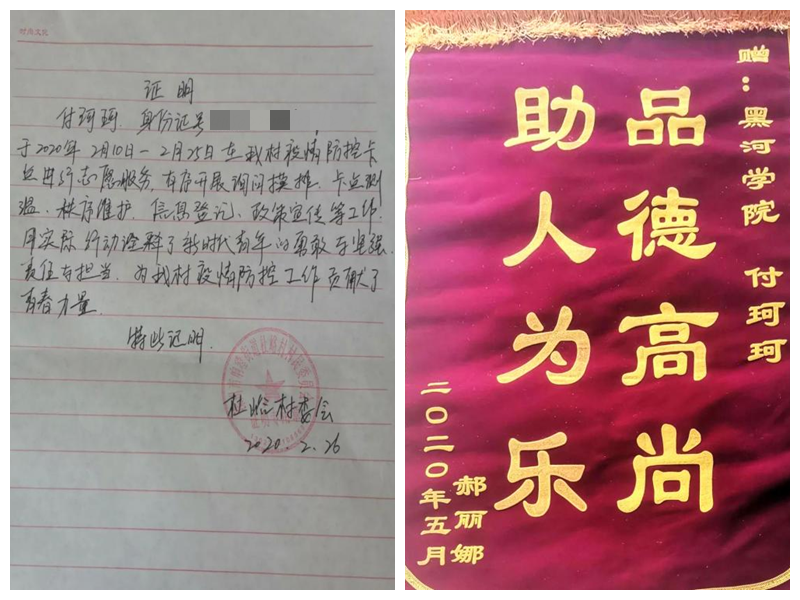 时尚文化
证明
付珂珂，身份证号
于2020年2月10日—2月25日在我村疫情防控卡
点进行志愿服务，有序开展询问摸排、卡点测
温、秩序维护、信息登记、政策宣传等工作，
用实际行动诠释了新时代青年的勇敢与坚强、
责任与担当，为我村疫情防控工作贡献了
青春力量
特此证明.
村委会
2020.2.26
赠：黑河学院 付珂珂
品德高尚
助人为乐
郝丽娜
二〇二〇年五月